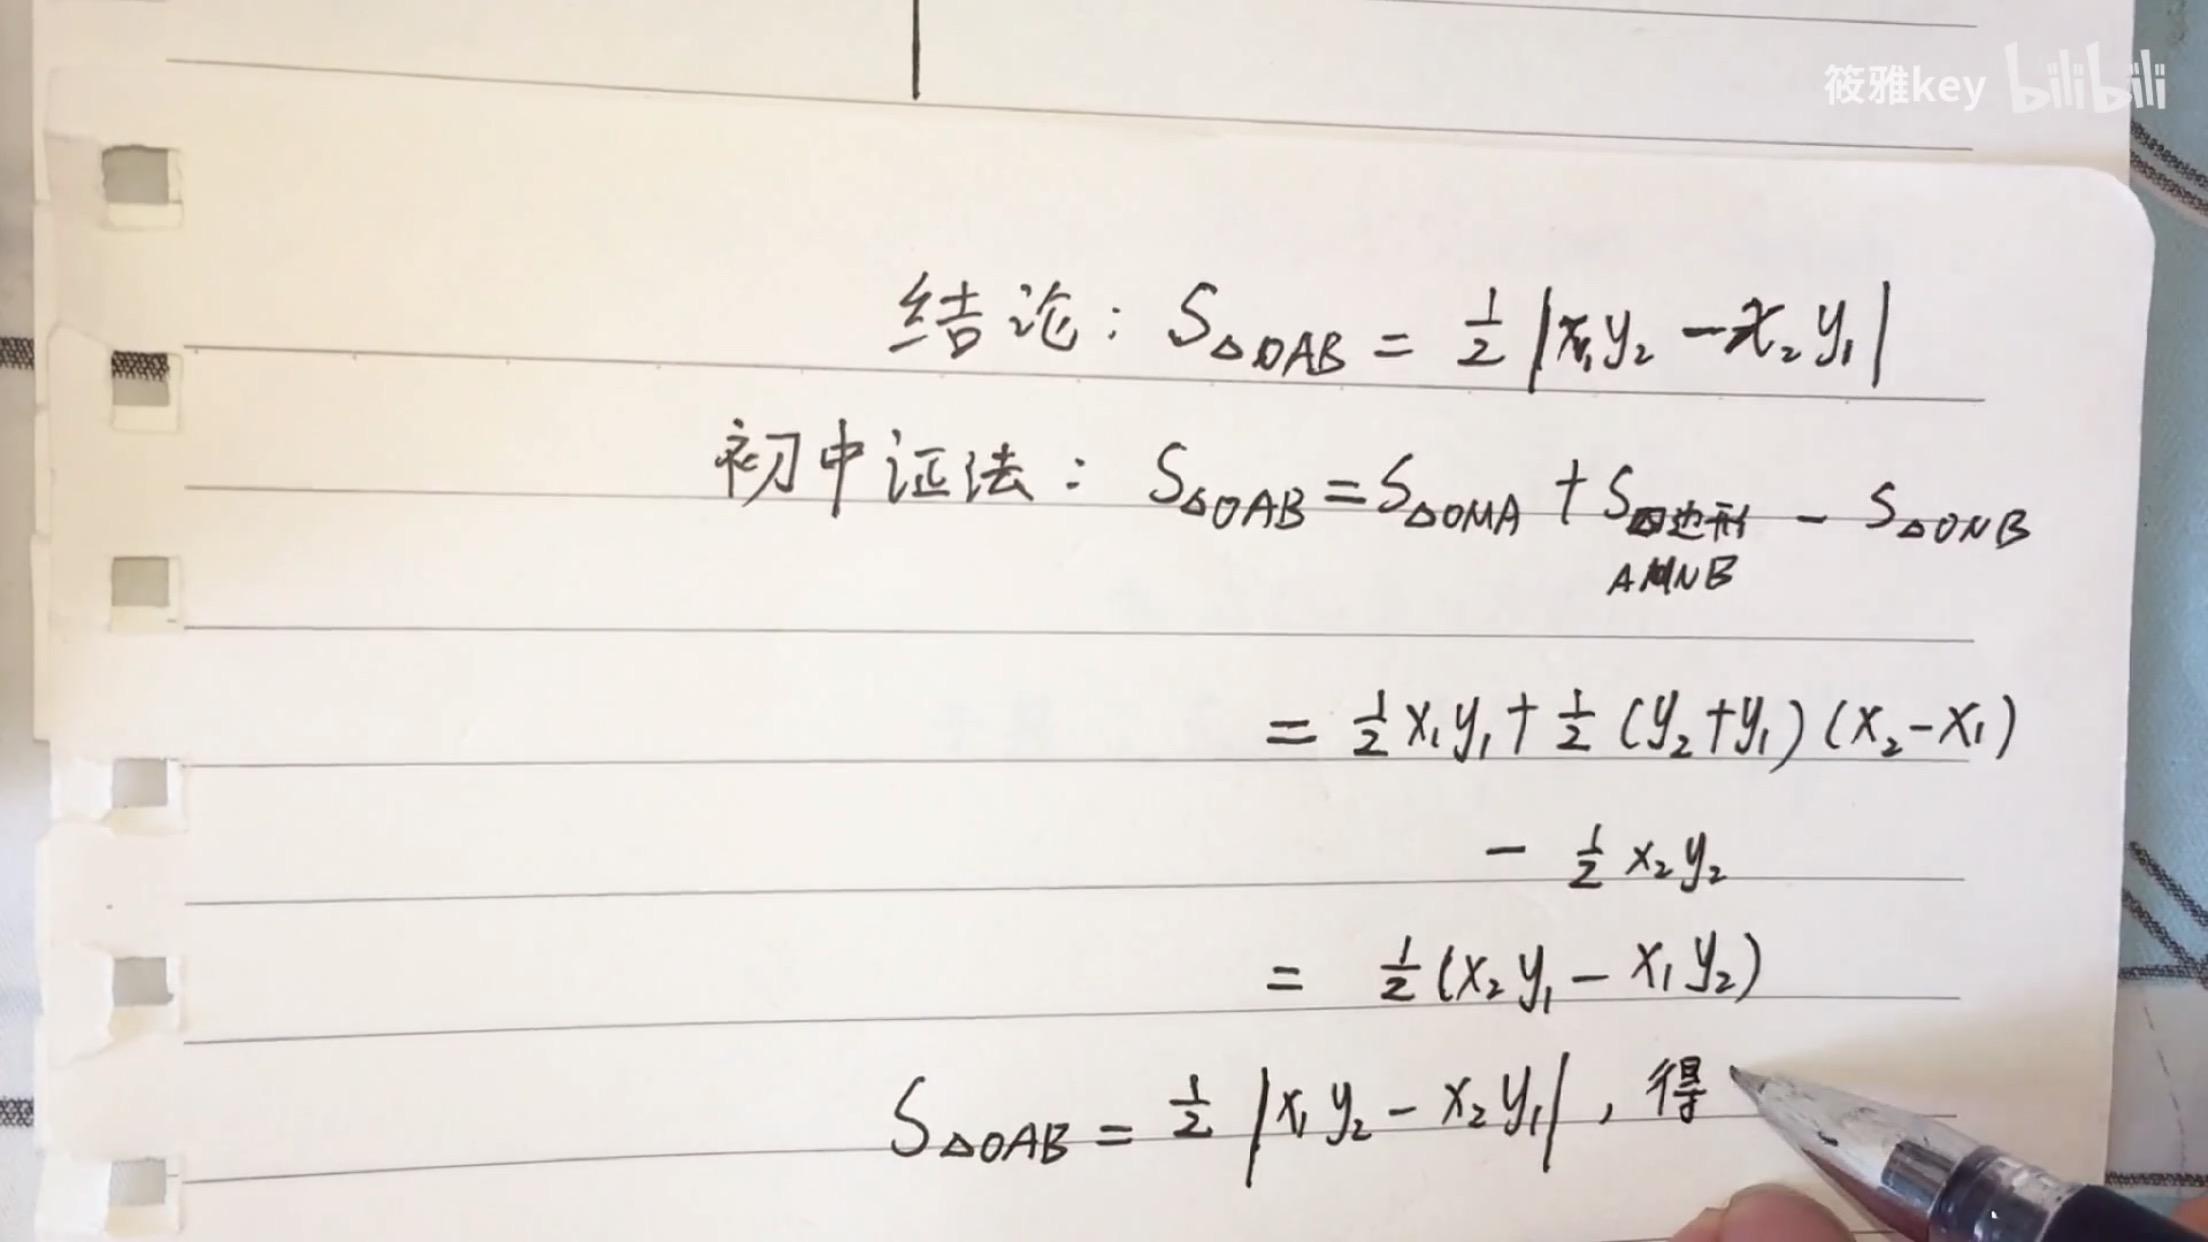 筱雅key bilibili
结论: S△OAB = 1/2 |x₁y₂ - x₂y₁|
初中证法: S△OAB = S△OMA + S四边形AMNB - S△ONB
= 1/2 x₁y₁ + 1/2 (y₂+y₁)(x₂-x₁)
- 1/2 x₂y₂
= 1/2 (x₂y₁ - x₁y₂)
S△OAB = 1/2 |x₁y₂ - x₂y₁|, 得